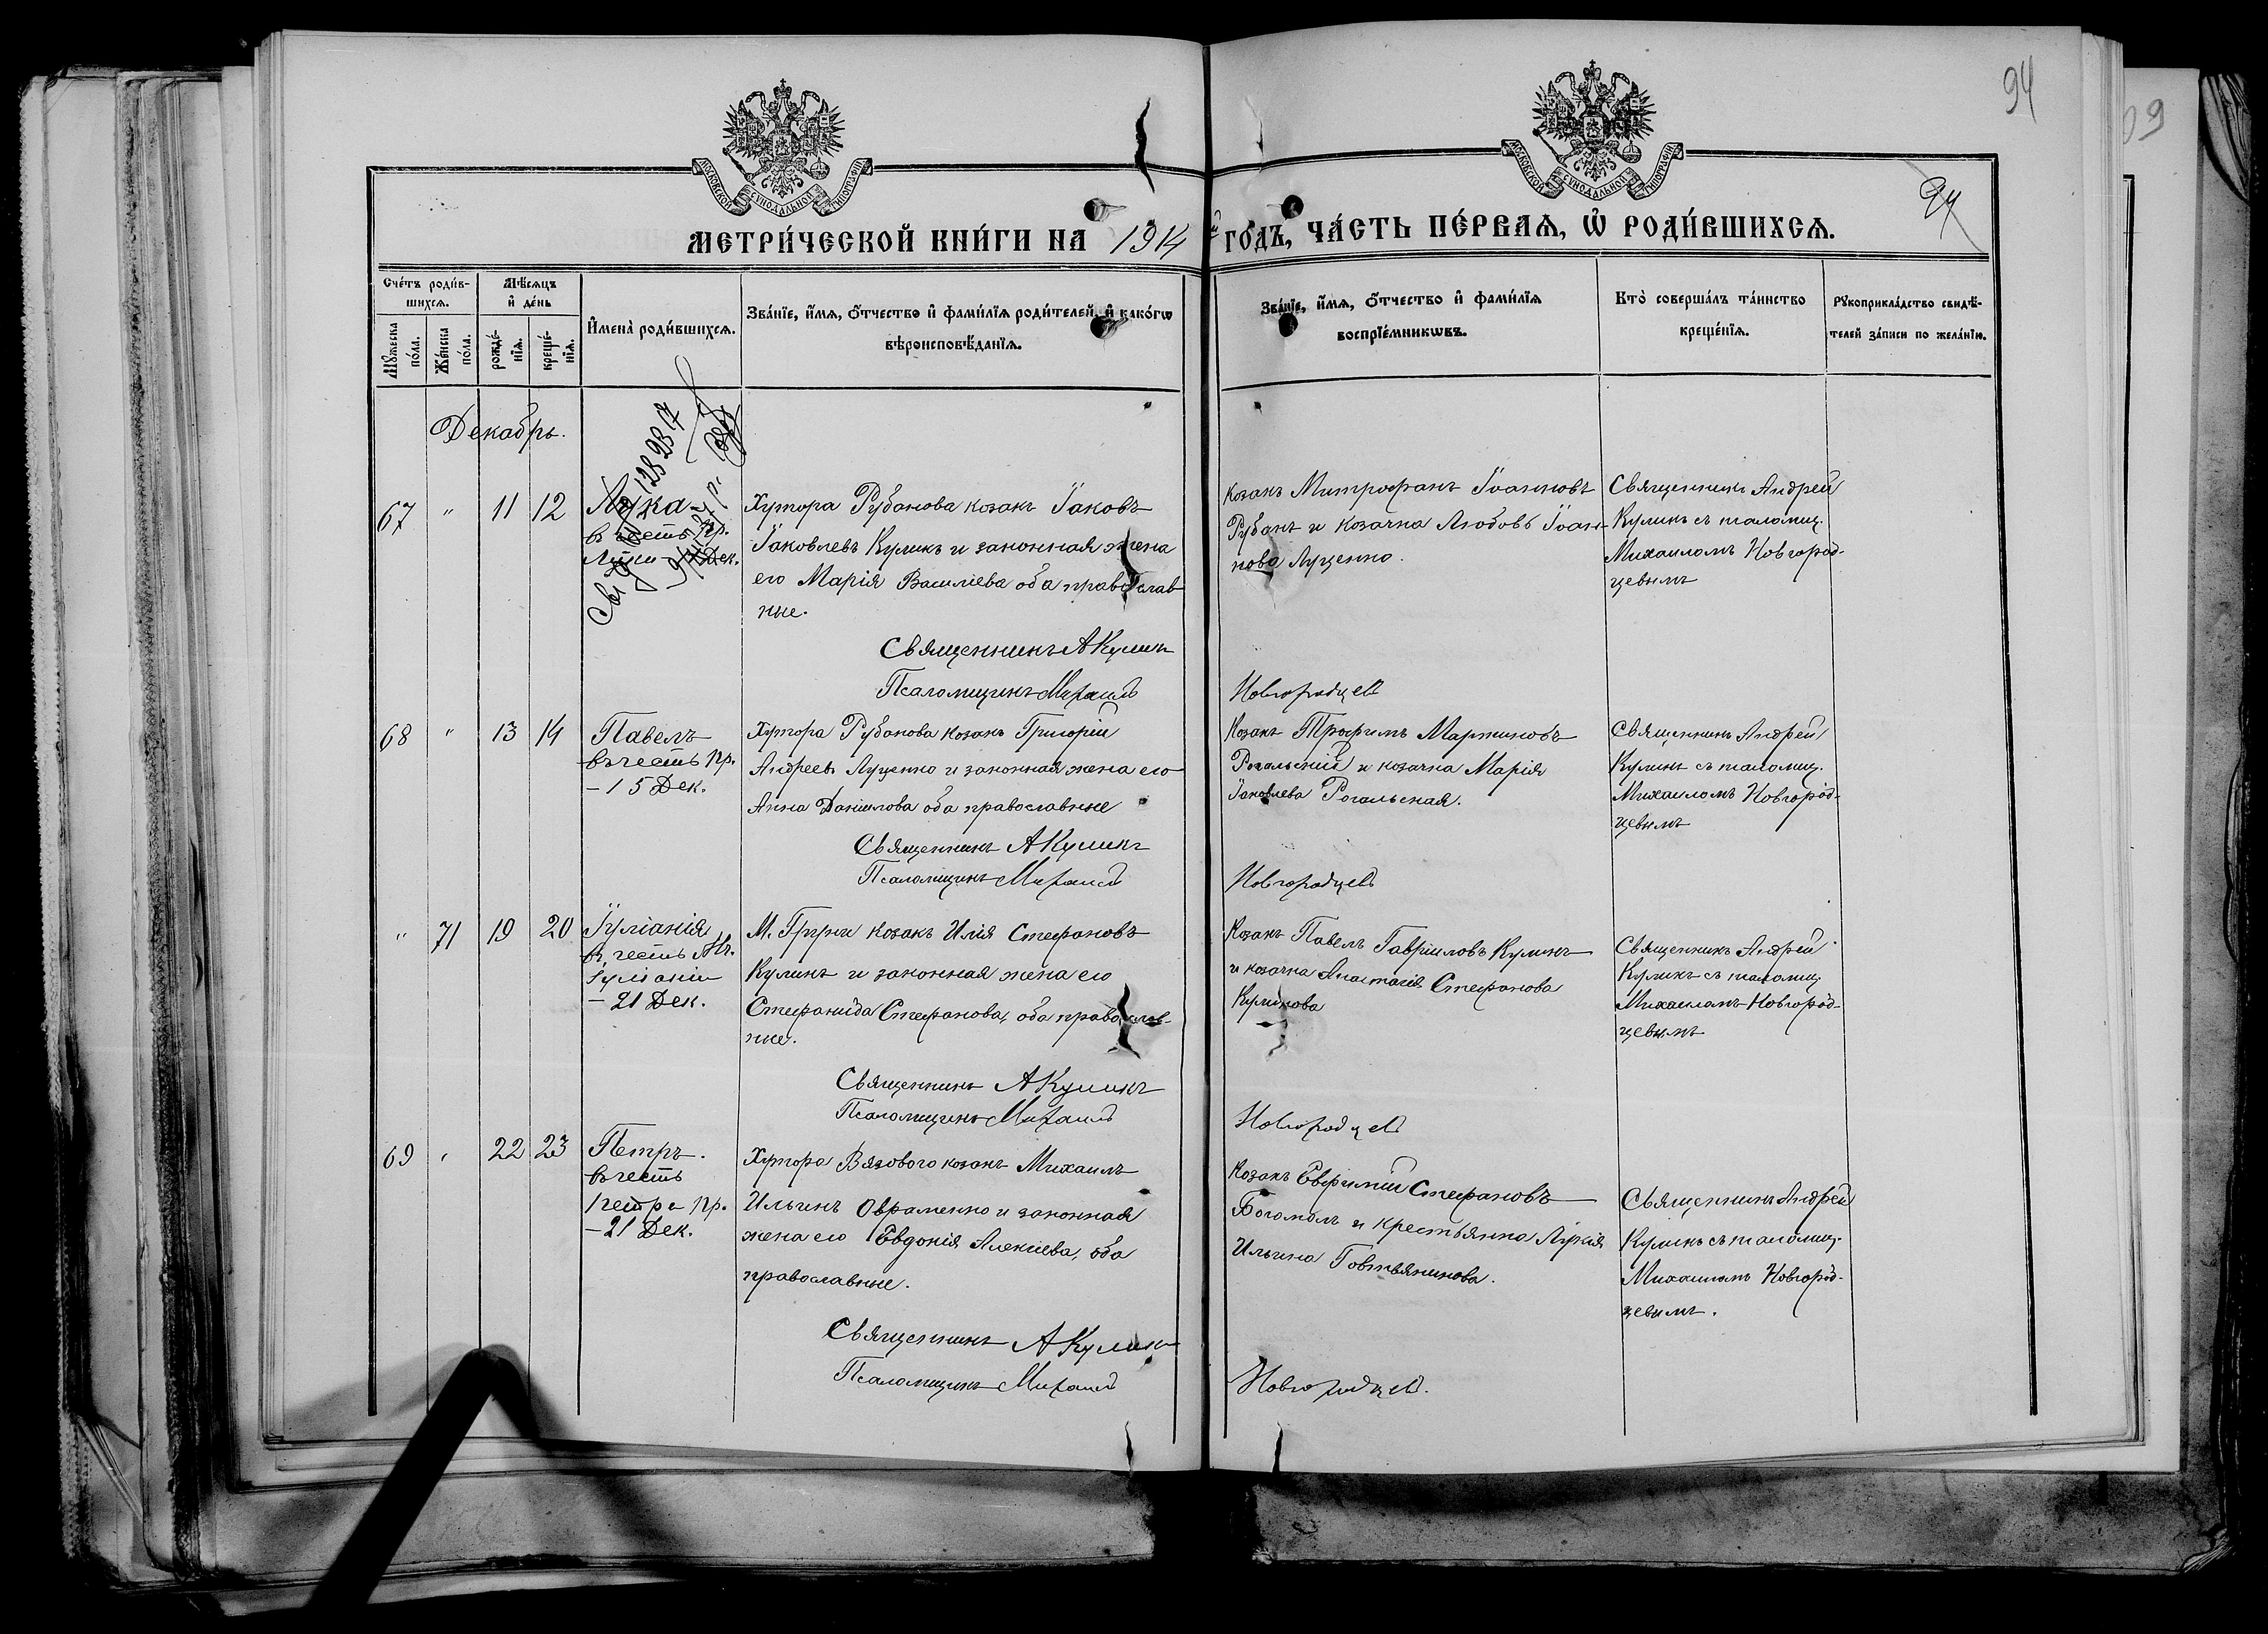 94
94
МОСКОВСКОЙ СѴНОДАЛЬНОЙ ТИПОГРАФІИ
МОСКОВСКОЙ СѴНОДАЛЬНОЙ ТИПОГРАФІИ
МЕТРИ́ЧЕСКОЙ КНИ́ГИ НА 1914 й ГО́ДЪ, ЧА́СТЬ ПЕ́РВАѦ, Ѡ҆ РОДИ́ВШИХСѦ.
Сче́тъ роди́в-
шихсѧ.
Мꙋ́жеска
по́ла.
Же́нска
по́ла.
Мѣ́сѧцъ
и҆ де́нь
рожде́-
нїѧ.
креще́-
нїѧ.
И҆мена̀ роди́вшихсѧ.
Зва́нїе, и҆́мѧ, ѻ҆́тчество и҆ фами́лїѧ роди́телей, и҆ како́гѡ
вѣроисповѣ́данїѧ.
Зва́нїе, и҆́мѧ, ѻ҆́тчество и҆ фами́лїѧ
воспрїе́мникѡвъ.
Кто̀ соверша́лъ та́инство
креще́нїѧ.
Рꙋкоприкла́дство свидѣ́-
телей за́писи по жела́нїю.
Декабрь.
67 " 11 12
Лука
въ честь Пр.
Луки Дек.
Хутора Рубанова козакъ Іаковъ
Іаковлевъ Куликъ и законная жена
его Марія Василіева оба православ
ные.
Священникъ А Куликъ
Псаломщикъ Михаилъ
Козакъ Митрофанъ Іоанновъ
Рубанъ и козачка Любовь Іоан-
нова Луценко.
Новгородцевъ
Священникъ Андрей
Куликъ съ псаломщ.
Михаиломъ Новгород-
цевымъ
68 " 13 14
Павелъ
въ честь пр.
- 15 Дек.
Хутора Рубанова козакъ Григорій
Андреевъ Луценко и законная жена его
Анна Даніилова оба православные
Священникъ А Куликъ
Псаломщикъ Михаилъ
Козакъ Трофимъ Мартиновъ
Рогальскій и козачка Марія
Іаковлева Рогальская.
Новгородцевъ
Священникъ Андрей
Куликъ съ псаломщ.
Михаиломъ Новгород-
цевымъ
" 71 19 20
Іуліанія
въ честь Мч.
Іуліаніи
- 21 Дек.
козакъ Илія Стефановъ
Куликъ и законная жена его
Стефанида Стефанова, оба православ-
ные.
Священникъ А Куликъ
Псаломщикъ Михаилъ
Козакъ Павелъ Гавріиловъ Куликъ
и козачка Анастасія Стефанова
Куликова
Новгородцевъ
Священникъ Андрей
Куликъ съ псаломщ
Михаиломъ Новгород-
цевымъ
69 " 22 23
Петръ.
въ честь
Петра пр.
- 21 Дек.
Хутора Вязового козакъ Михаилъ
Ильинъ Овраменко и законная
жена его Евдокія Алексіева, оба
православные.
Священникъ А Куликъ
Псаломщикъ Михаилъ
Козакъ Евфимій Стефановъ
Богомолъ и крестьянка Лукія
Ильина Говтвяникова.
Новгородцевъ.
Священникъ Андрей
Куликъ съ псаломщ.
Михаиломъ Новгород-
цевымъ.